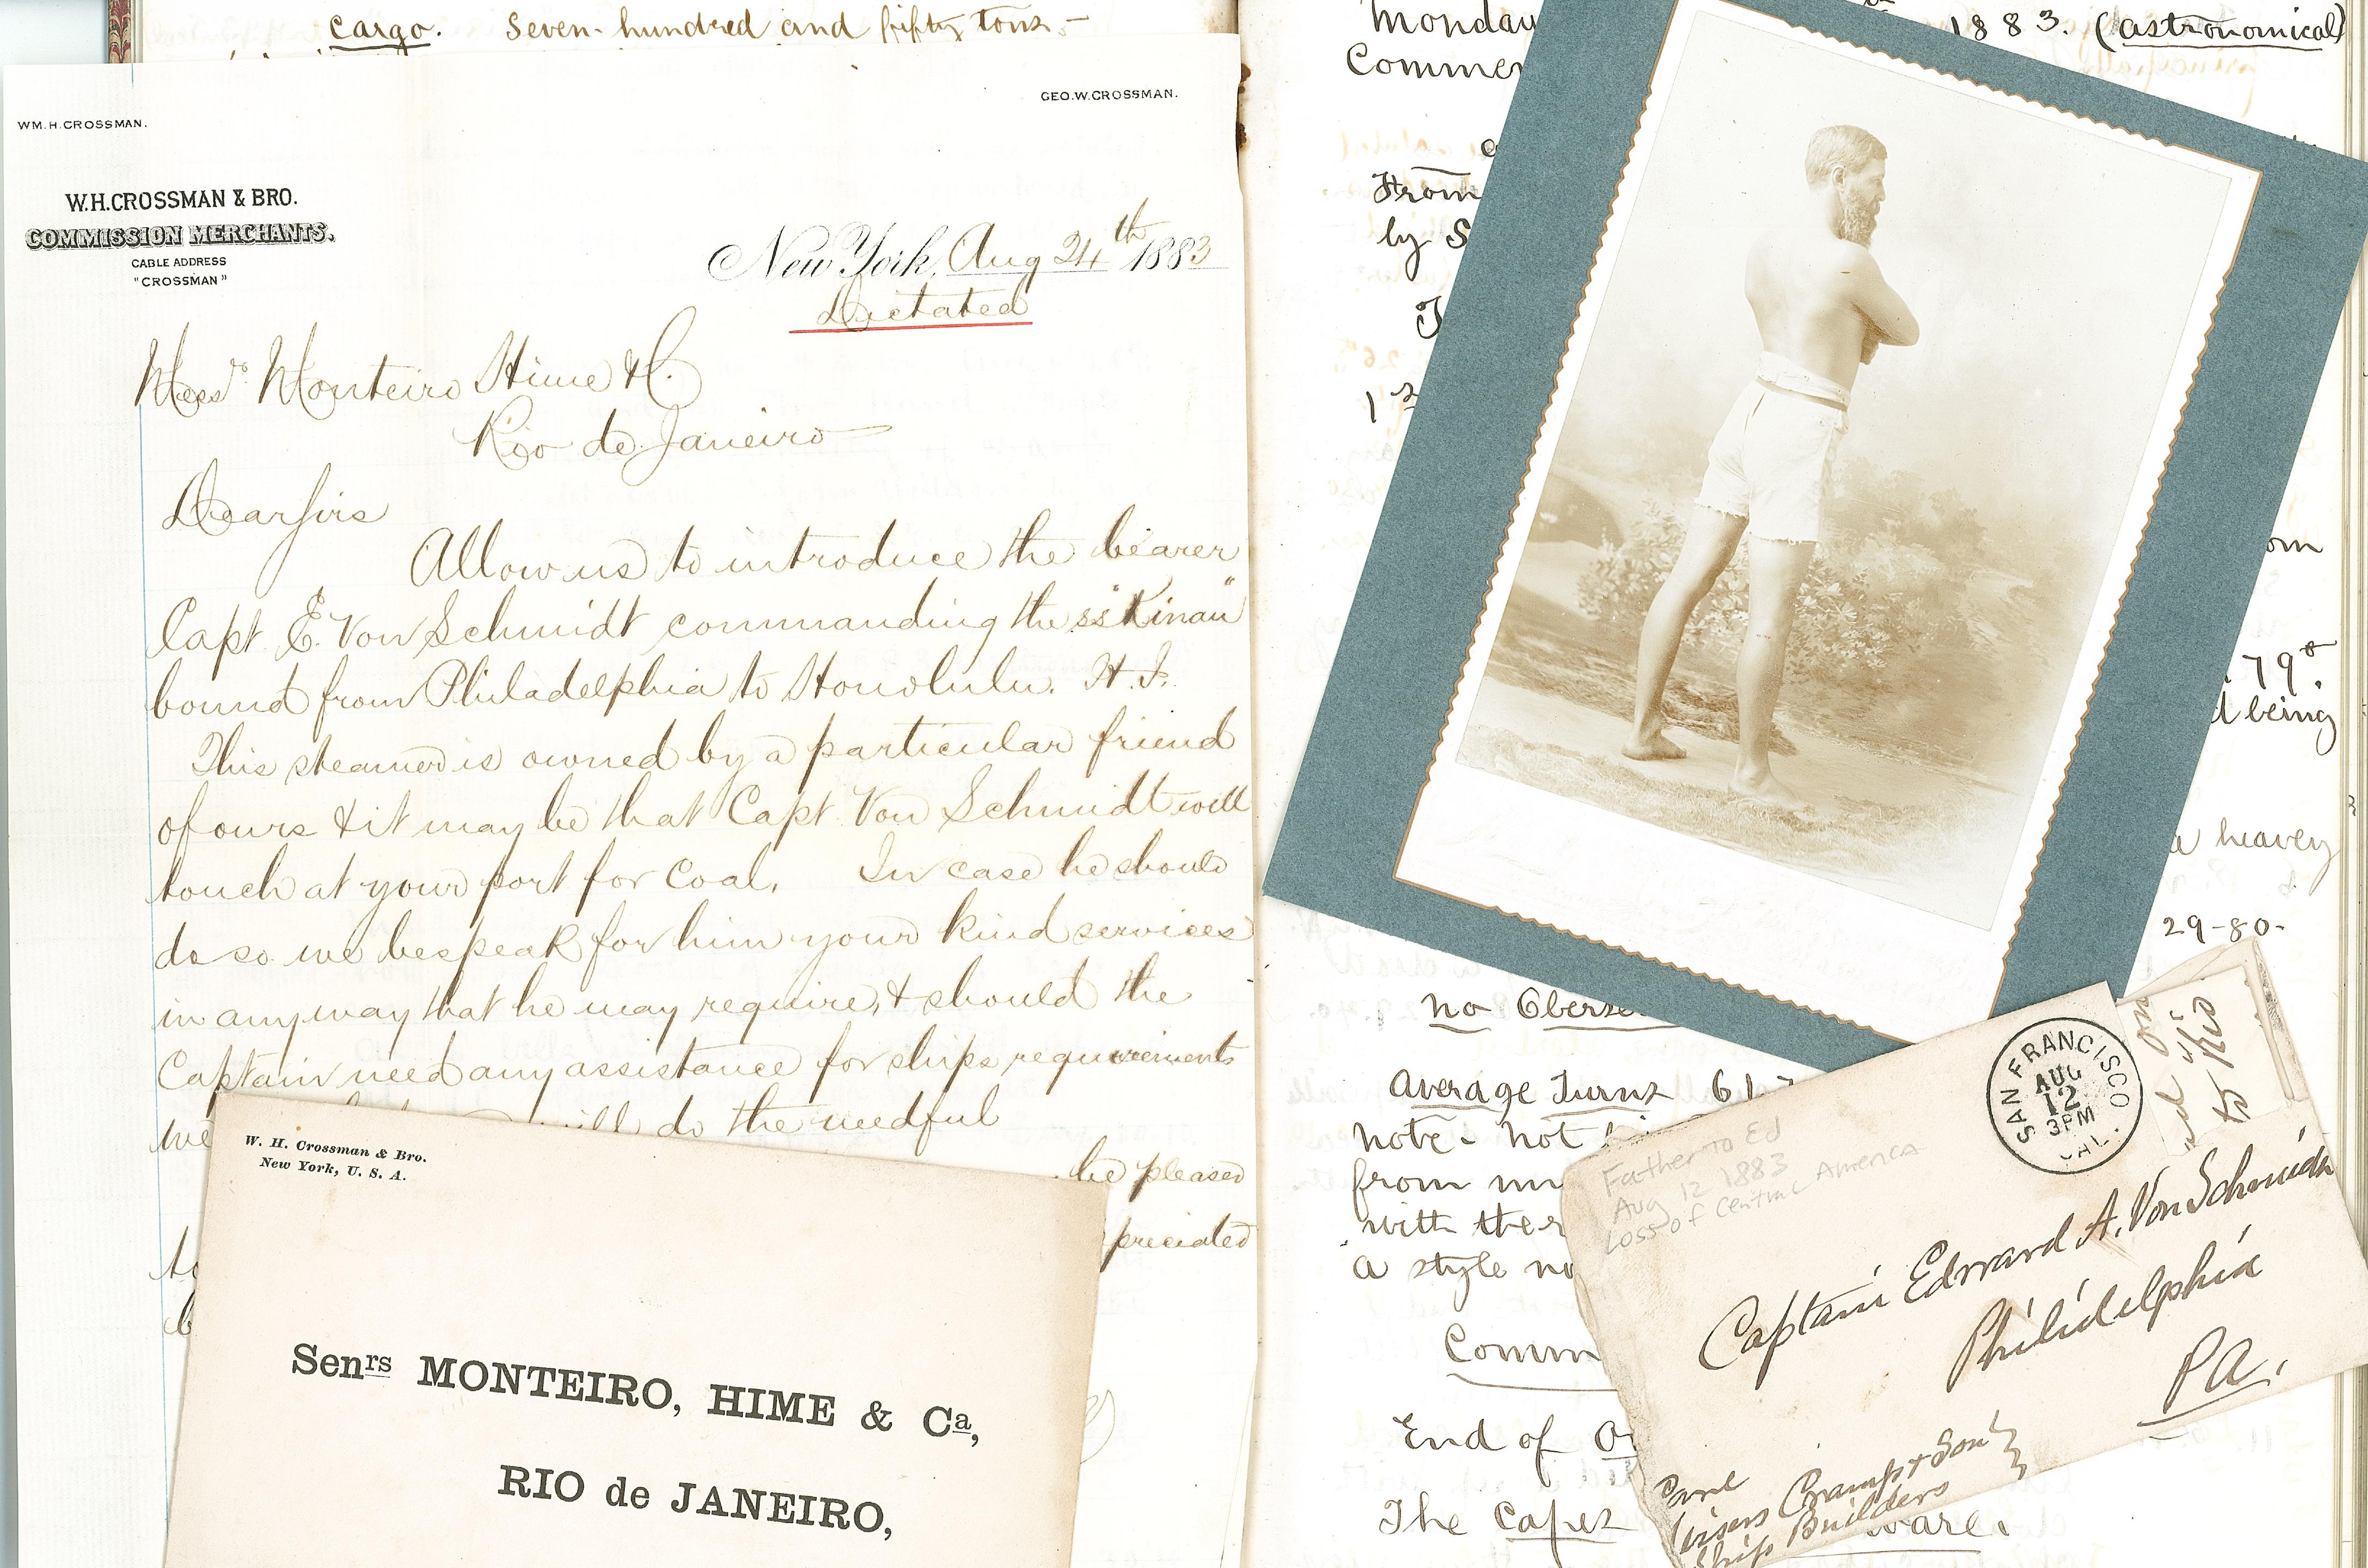 cargo. Seven-hundred and fifty tons.-
WM.H.CROSSMAN.
GEO.W.CROSSMAN.
W.H.CROSSMAN & BRO.
COMMISSION MERCHANTS.
CABLE ADDRESS
"CROSSMAN"
New York, Aug 24th 1883
Dictated
Messrs Monteiro Hime & C.
Rio de Janeiro
Dear Sirs
Allow us to introduce the bearer
Capt E. Von Schmidt commanding the ss "Kinau"
bound from Philadelphia to Honolulu. H.I.
This steamer is owned by a particular friend
of ours & it may be that Capt Von Schmidt will
touch at your port for Coal. In case he should
do so we bespeak for him your kind services
in any way that he may require, & should the
Captain need any assistance for ships requirements
we will do the needful
be pleased
preciated
W. H. Crossman & Bro.
New York, U. S. A.
Senrs MONTEIRO, HIME & Ca,
RIO de JANEIRO,
Monday 1883. (astronomical)
Commen
From
by S
1st
om
79°
d being
a heavy
29-80-
no Obers
Average Turns 61
note- not
from
with the
a style no
Comm
End of
The Capes ware.
SAN FRANCISCO
AUG
12
3PM
CAL.
to Rio
Father to Ed
Aug 12 1883
Loss of Central America
Captain Edward A. Von Schmidt
Philidelphia
PA.
Care
Cramp & Son
Ship Builders